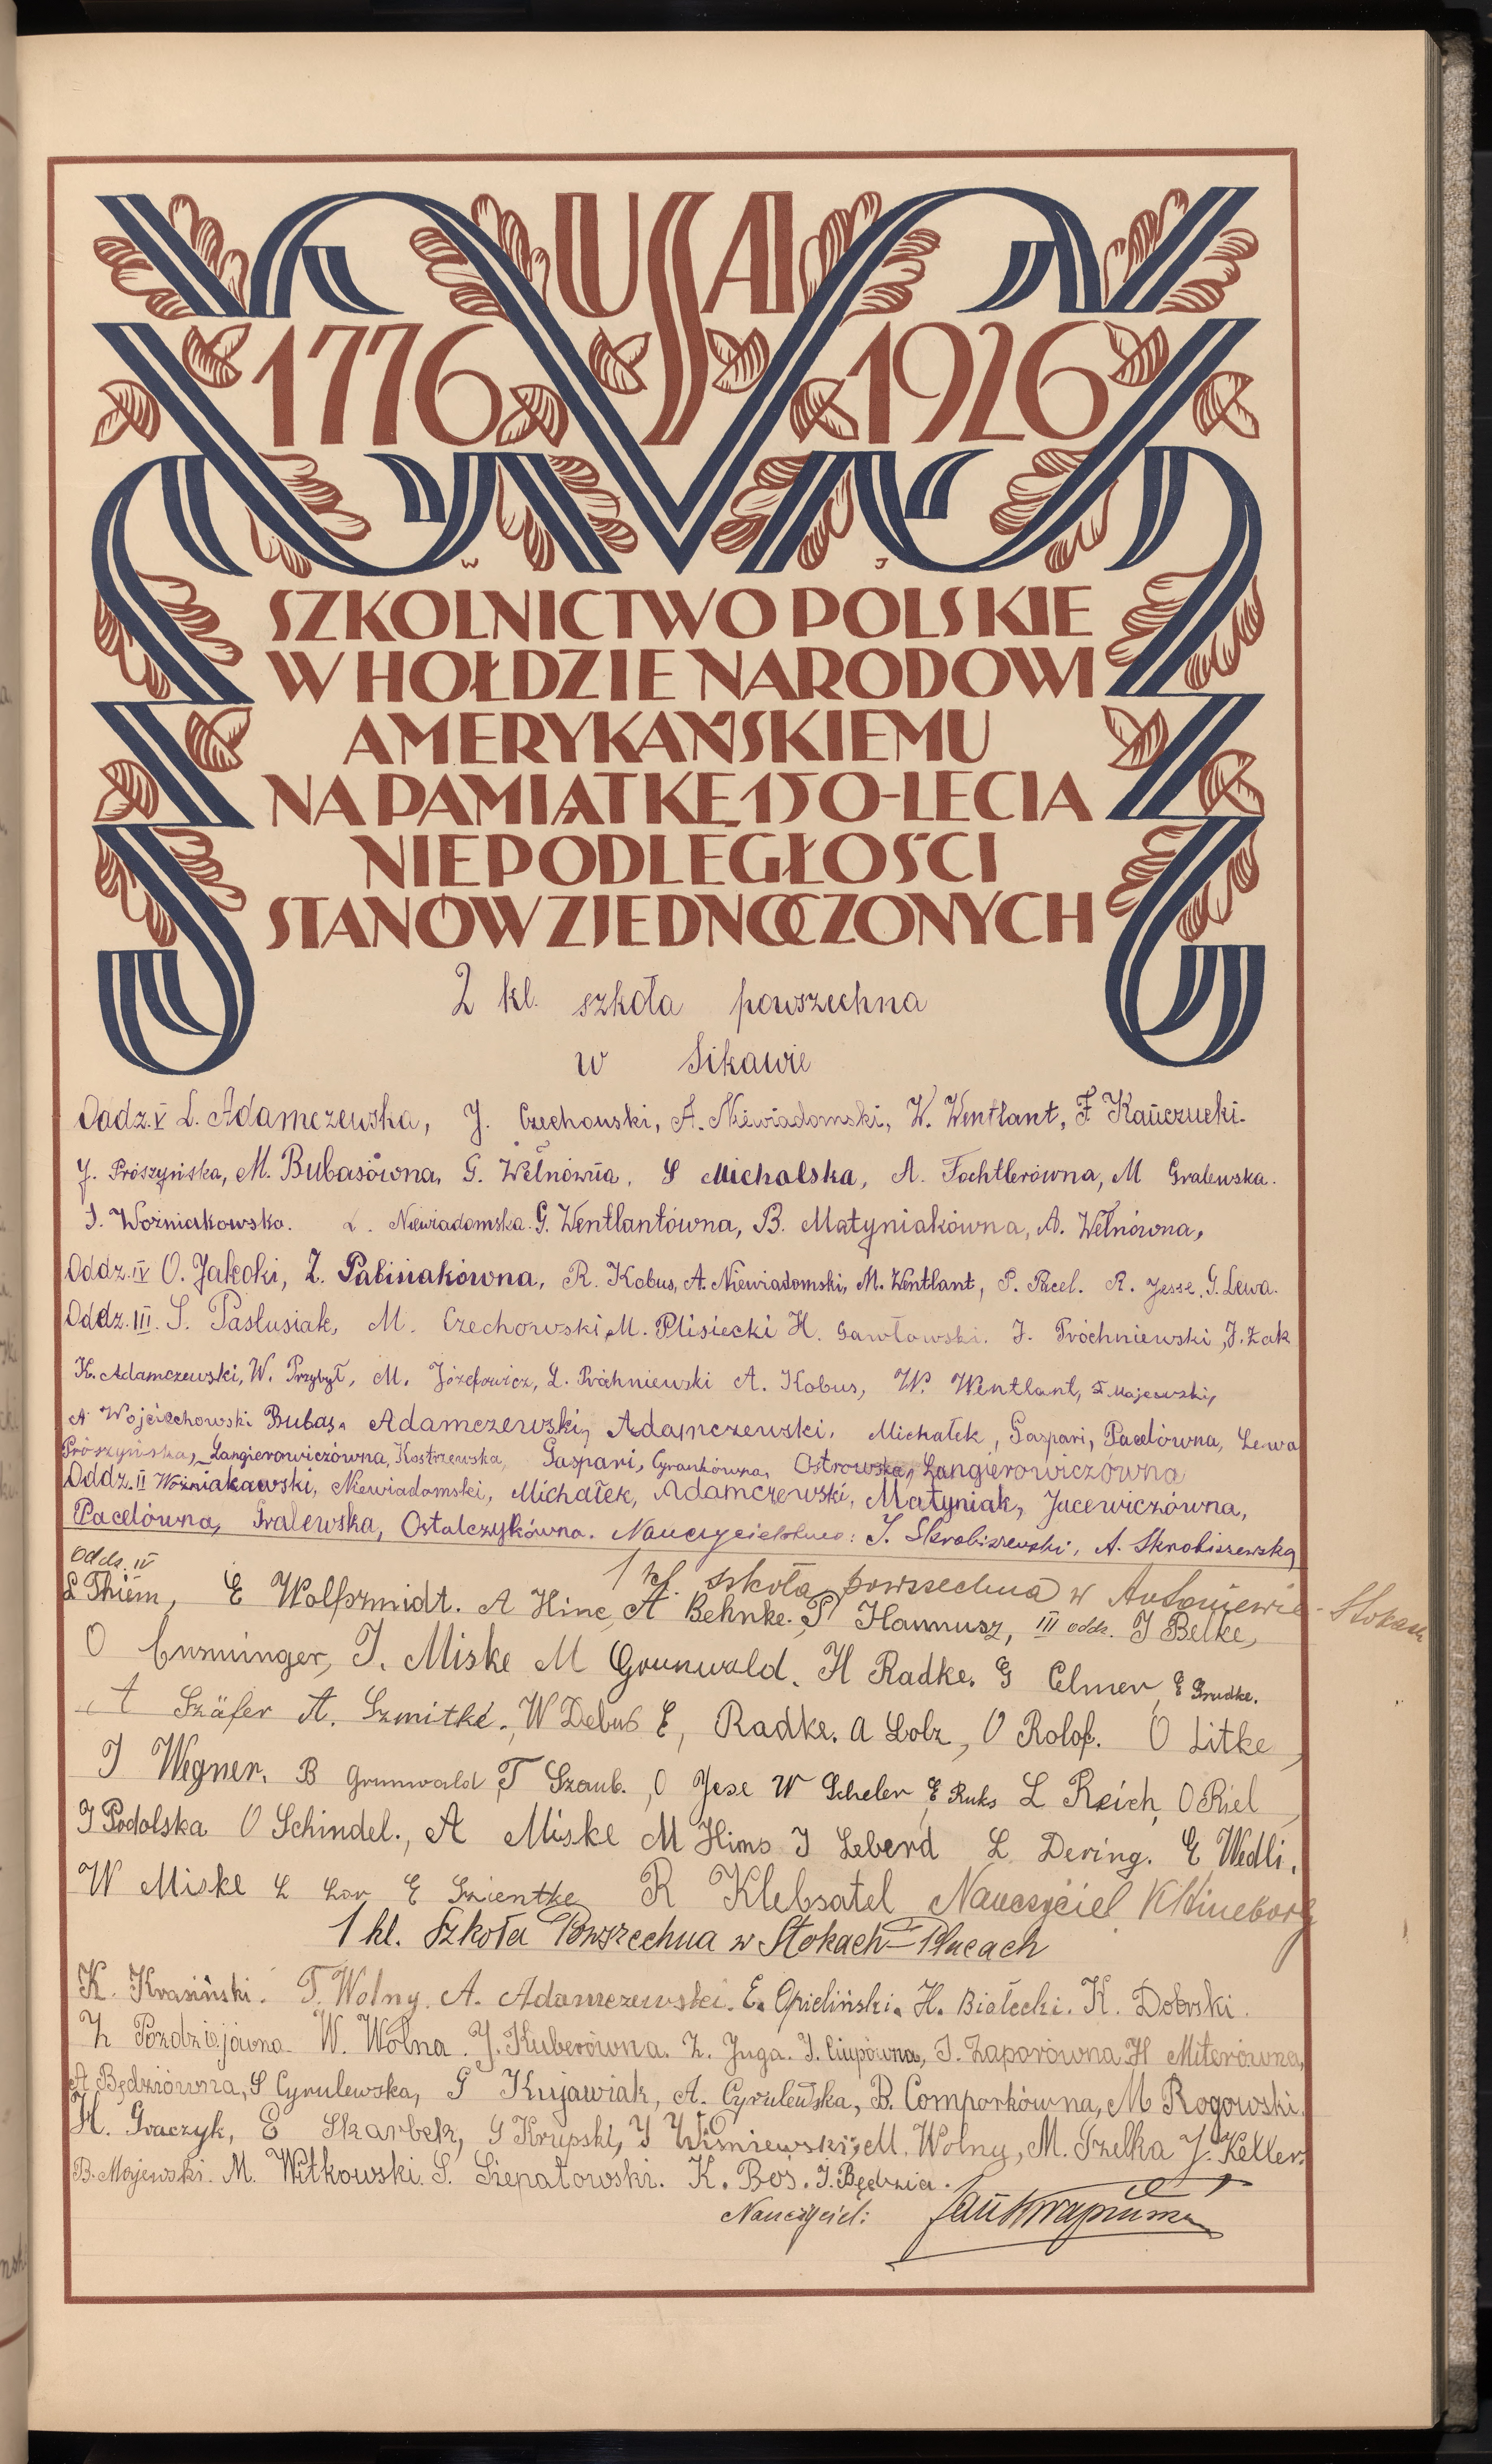 USA
1776 1926
W J
SZKOLNICTWO POLSKIE
W HOŁDZIE NARODOWI
AMERYKAŃSKIEMU
NA PAMIĄTKĘ 150-LECIA
NIEPODLEGŁOŚCI
STANÓW ZJEDNOCZONYCH
2 kl. szkoła powszechna
w Sikawie
Oddz. V L. Adamczewska, J. Czechowski, A. Niewiadomski, W. Wentlant, F. Kańczucki.
J. Prószyńska, M. Bubasówna, G. Wełnówna, S Michalska, A. Tochtlerówna, M Gralewska.
J. Woźniakowska. L. Niewiadomska. G. Wentlantówna, B. Matyniakówna, A. Wełnówna,
Oddz. IV O. Jakocki, Z. Pabisiakówna, R. Kobus, A. Niewiadomski, M. Wentlant, P. Pacel. R. Jesse, G. Lewa.
Oddz. III. S. Pasłusiak, M. Czechowski, M. Plisiecki H. Gawłowski. J. Próchniewski, J. Żak
K. Adamczewski, W. Przybył, M. Józefowicz, L. Próchniewski A. Kobus, W. Wentlant, F. Majewski,
A Wojciechowski Bubas, Adamczewski, Adamczewski, Michałek, Gaspari, Pacelówna, Lewa
Prószyńska, Langierowiczówna, Kostrzewska, Gaspari, Grankówna, Ostrowska, Langierowiczówna
Oddz. II Woźniakowski, Niewiadomski, Michałek, Adamczewski, Matyniak, Jucewiczówna,
Pacelówna, Gralewska, Ostalczykówna. Nauczycielstwo: J. Skrobiszewski, A. Skrobiszewska
1 kl. szkoła powszechna w Antoniewie-Stokach
oddz. IV
L Thiem, E Wolfszmidt. A Hinc, A Behnke. P Hammusz, III oddz. J Belke,
O Ensminger, J. Miske M Grunwald. H Radke. G Elmer, E Grudke.
A Szäfer A. Szmitke., W Debus E, Radke. A Lolz, O Rolof. O Litke,
J Wegner. B Grunwald, T Szaub., O Jese W Scheler, E Ruks L Reich, O Riel,
J Podolska O Schindel., A Miske M Hims J Leberd L Dering. E Wedli.
W Miske L Lor E Szientke R Klebsatel Nauczyciel K Hineborg
1 kl. Szkoła Powszechna w Stokach-Placach
K. Krasiński. T. Wolny. A. Adamczewski. E. Opieliński. H. Białecki. K. Dobrski.
Z Pozdziejówna. W. Wolna. J. Kuberówna. Z. Juga. J. Ciupówna, J. Zaporówna H Miterówna,
A Będziówna, S Cyrulewska, G Kujawiak, A. Cyrulewska, B. Comporkówna, M Rogowski.
H. Graczyk, E Skarbek, S Krupski, J Wiśniewski, M. Wolny, M. Grzelka J. Keller.
B. Majewski. M. Witkowski. S. Szepatowski. K. Boś. J. Będzia.
Nauczyciel: